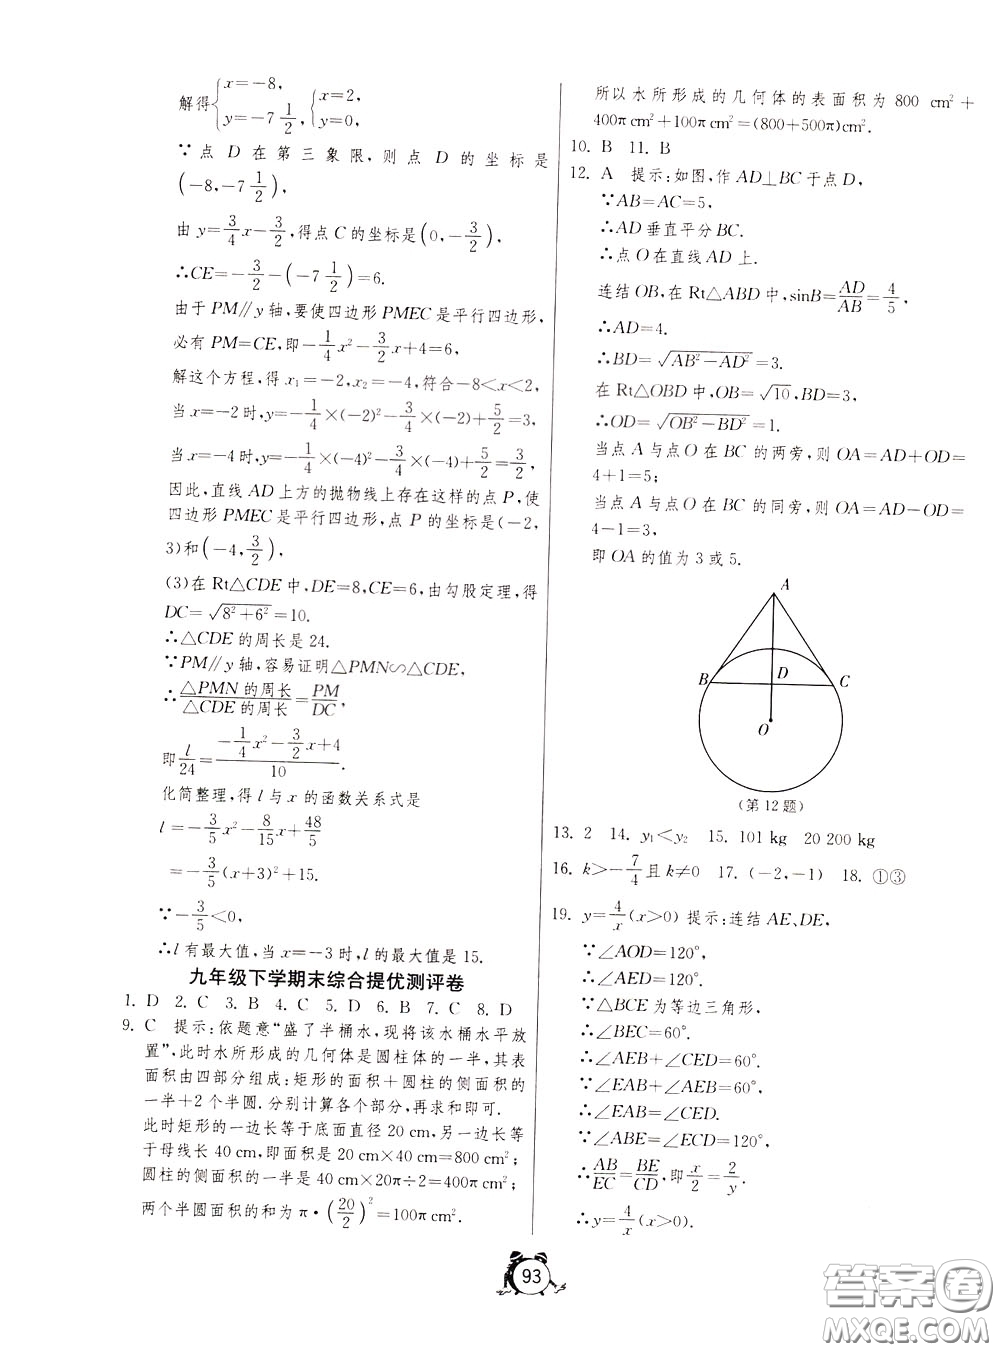 解得{x=-8, y=-7 1/2, {x=2, y=0,
∵点 D 在第三象限,则点 D 的坐标是
(-8,-7 1/2),
由 y=3/4x-3/2,得点 C 的坐标是(0,-3/2),
∴CE=-3/2-(-7 1/2)=6.
由于 PM∥y 轴,要使四边形 PMEC 是平行四边形,
必有 PM=CE,即-1/4x²-3/2x+4=6,
解这个方程,得 x₁=-2,x₂=-4,符合-8<x<2,
当 x=-2时,y=-1/4×(-2)²-3/4×(-2)+5/2=3,
当 x=-4时,y=-1/4×(-4)²-3/4×(-4)+5/2=3/2,
因此,直线 AD 上方的抛物线上存在这样的点 P,使
四边形 PMEC 是平行四边形,点 P 的坐标是(-2,
3)和(-4,3/2),
(3)在 Rt△CDE 中,DE=8,CE=6,由勾股定理,得
DC=√(8²+6²)=10.
∴△CDE 的周长是 24.
∵PM∥y 轴,容易证明△PMN∽△CDE,
∴△PMN 的周长/△CDE 的周长=PM/DC,
即 l/24=(-1/4x²-3/2x+4)/10.
化简整理,得 l 与 x 的函数关系式是
l=-3/5x²-8/15x+48/5
=-3/5(x+3)²+15.
∵-3/5<0,
∴l 有最大值,当 x=-3 时,l 的最大值是 15.
九年级下学期末综合提优测评卷
1. D 2. C 3. B 4. C 5. D 6. B 7. C 8. D
9. C 提示:依题意“盛了半桶水,现将该水桶水平放
置”,此时水所形成的几何体是圆柱体的一半,其表
面积由四部分组成:矩形的面积+圆柱的侧面积的
一半+2 个半圆.分别计算各个部分,再求和即可.
此时矩形的一边长等于底面直径 20 cm,另一边长等
于母线长 40 cm,即面积是 20 cm×40 cm=800 cm²;
圆柱的侧面积的一半是 40 cm×20π÷2=400π cm²;
两个半圆面积的和为 π·(20/2)²=100π cm².
所以水所形成的几何体的表面积为 800 cm²+
400π cm²+100π cm²=(800+500π)cm².
10. B 11. B
12. A 提示:如图,作 AD⊥BC 于点 D,
∵AB=AC=5,
∴AD 垂直平分 BC.
∴点 O 在直线 AD 上.
连结 OB,在 Rt△ABD 中,sinB=AD/AB=4/5,
∴AD=4.
∴BD=√(AB²-AD²)=3.
在 Rt△OBD 中,OB=√10,BD=3,
∴OD=√(OB²-BD²)=1.
当点 A 与点 O 在 BC 的两旁,则 OA=AD+OD=
4+1=5;
当点 A 与点 O 在 BC 的同旁,则 OA=AD-OD=
4-1=3,
即 OA 的值为 3 或 5.
A
B D C
O
(第 12 题)
13. 2 14. y₁<y₂ 15. 101 kg 20 200 kg
16. k>-7/4且 k≠0 17. (-2,-1) 18. ①③
19. y=4/x(x>0) 提示:连结 AE、DE,
∵∠AOD=120°,
∴∠AED=120°.
∵△BCE 为等边三角形,
∴∠BEC=60°.
∴∠AEB+∠CED=60°.
∵∠EAB+∠AEB=60°,
∴∠EAB=∠CED.
∵∠ABE=∠ECD=120°,
∴AB/EC=BE/CD,即x/2=2/y.
∴y=4/x(x>0).
93
答案圈
MXQE.COM